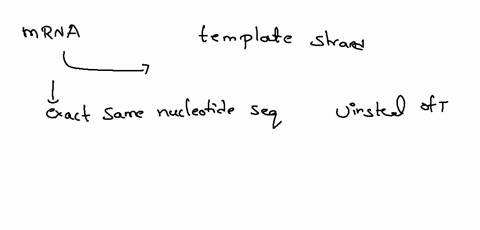 mRNA template strand
exact same nucleotide seq U insted of T